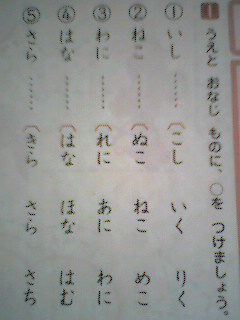 1 うえと おなじ ものに、○を つけましょう。
① いし ……（こし いく りく
② ねこ ……（ぬこ ねこ めこ
③ わに ……（れに あに わに
④ はな ……（はな ほな はむ
⑤ さら ……（きら さら さち